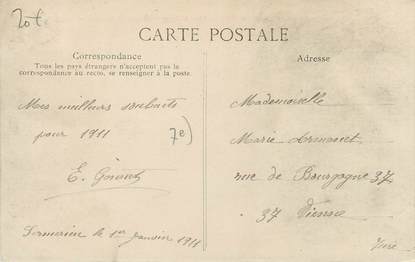 20f
CARTE POSTALE
Correspondance
Tous les pays étrangers n'acceptent pas le
correspondance au recto, se renseigner à la poste.
Mes meilleurs souhaits
pour 1911
7e)
E.
le 1er Janvier 1911
Adresse
Mademoiselle
Marie
rue de Bourgogne 37
37 Vienne
Isère